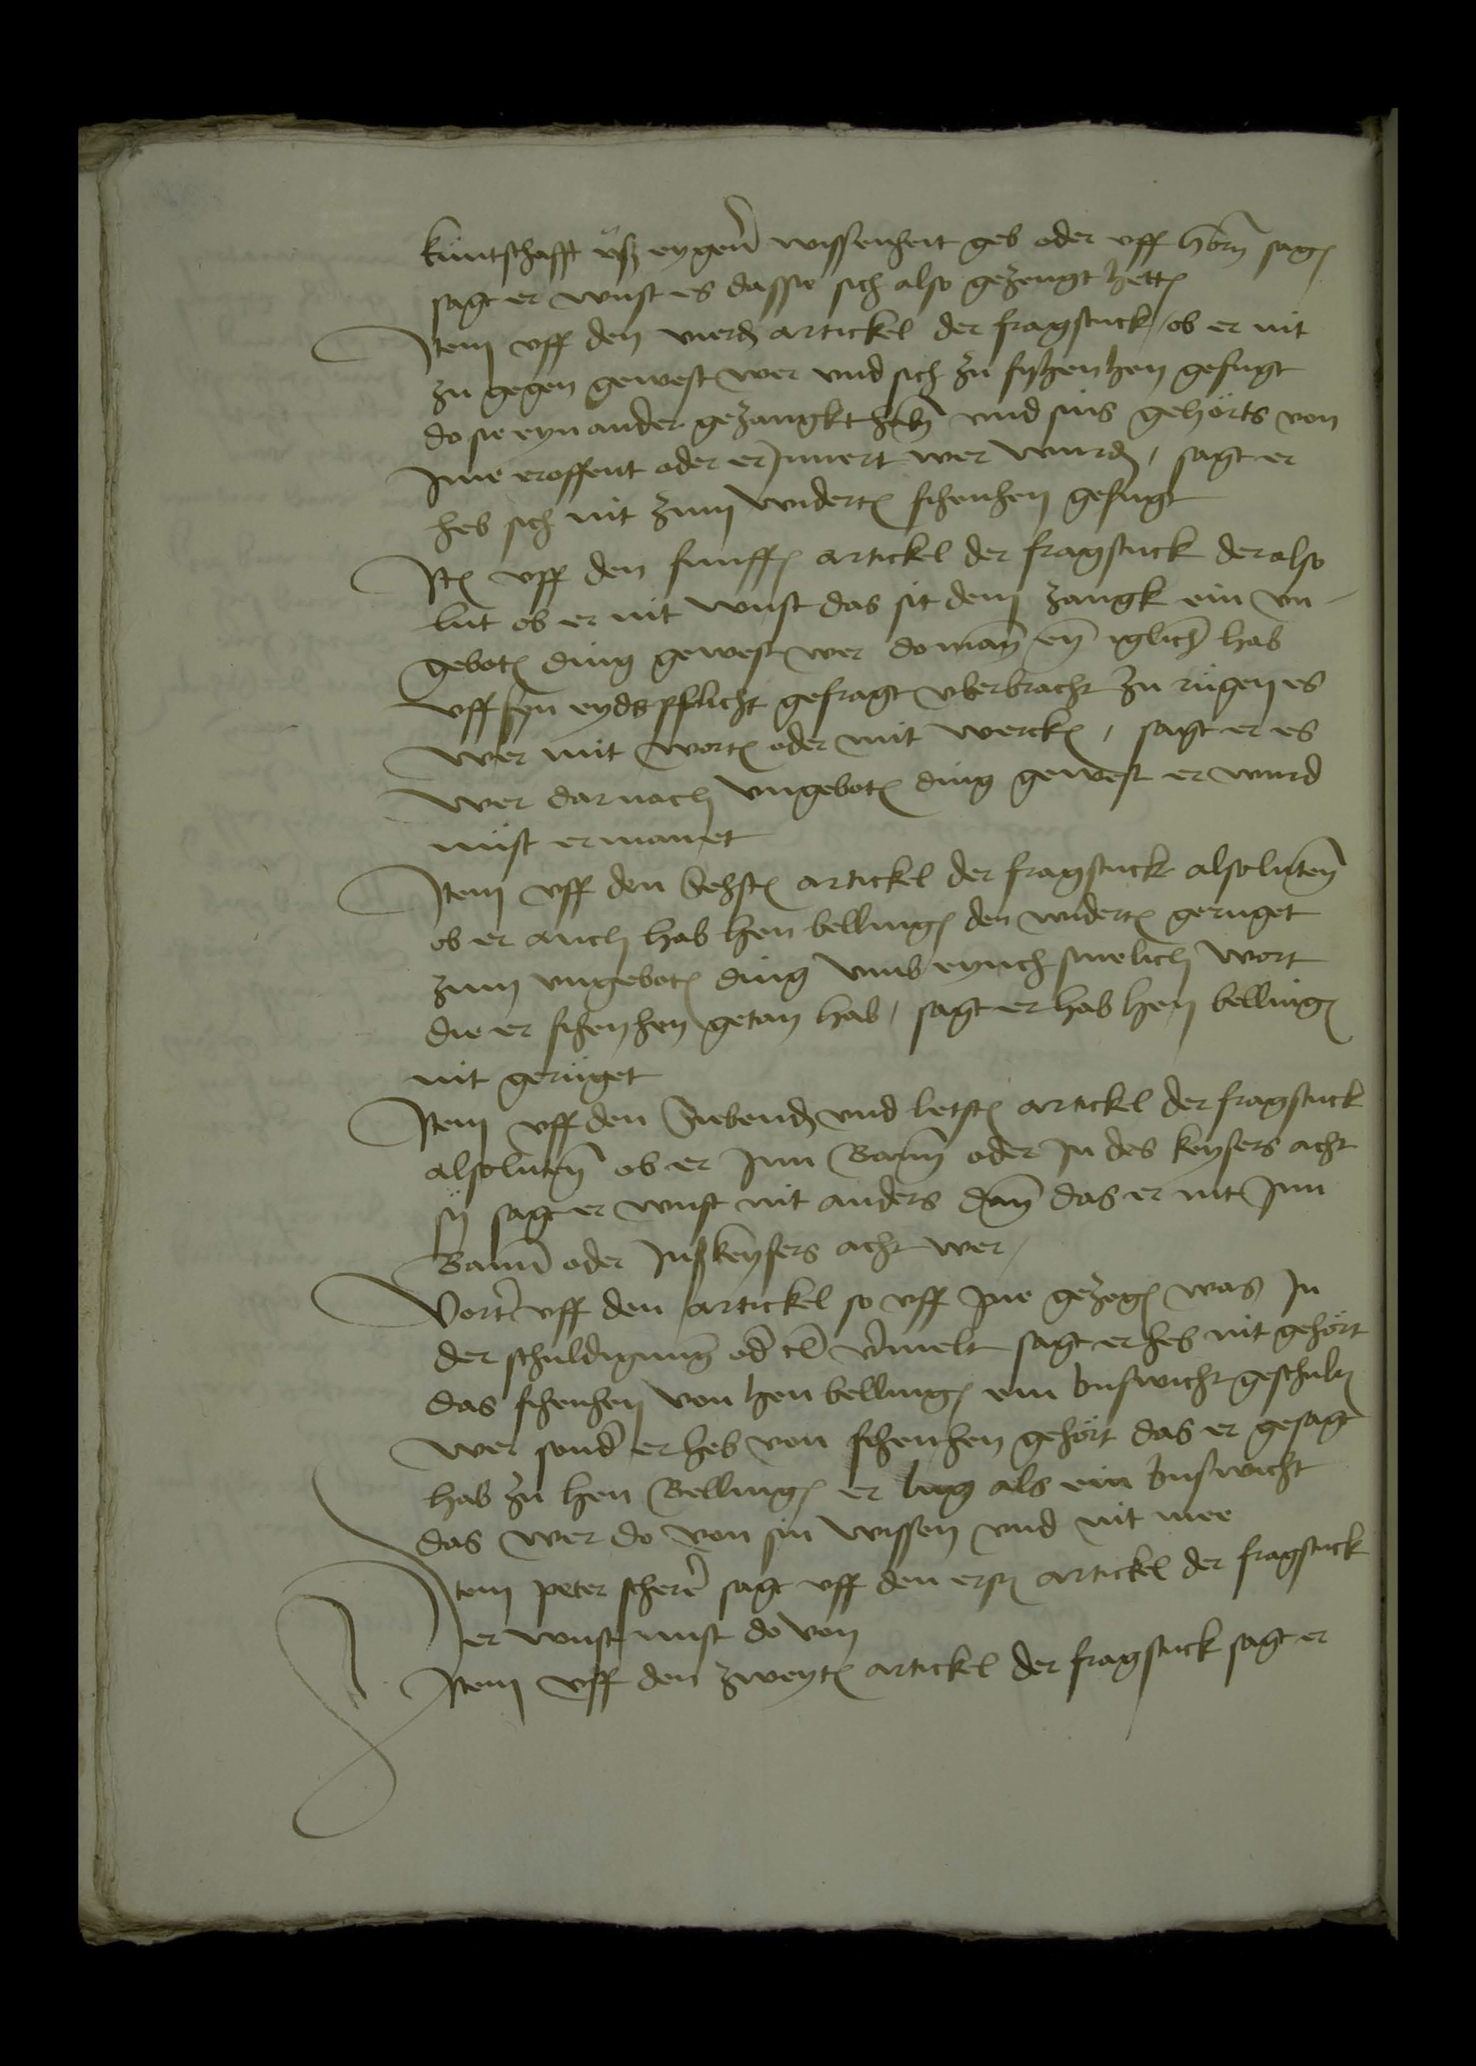 kuntschafft usz eygen wissenheit geb oder uff horn sag
sagt er wust es dasse sich also gezeugt hett
Item uff den vierd artickel der fragstuck / ob er nit
zu gegen gewest wer und sich zu gefugt
do sie eyn ander gezangkt hab und sins gehörts von
Ime eroffent oder erJnnert wer wurd / sagt er
heb sich nit zum widert gefugt
Ite uff den funfft artickel der fragstuck der also
lut ob er nit wust das sit dem zangk ein un
gebot ding gewest wer do man ein iglich hab
uff syn eydspflicht gefragt uberbracht zu rugen es
wer mit wort oder mit werck / sagt er es
wer darnach ungebot ding gewest er wurd
nust ermanet
Item uff den Sehst artickel der fragstuck also luten
ob er auch hab hen belling den widert geruget
zum ungebot ding umb eynich smelich wort
die er getan hab / sagt er hab hen belling
nit geruget
Item uff den Siebend und letst artickel der fragstuck
also luten ob er Inn Bann oder In des keysers acht
sy sagt er wust nit anders dan das er nit Inn
Bann oder Ins keysers acht wer /
Vorter uff den artickel so uff Ine gezog was In
der schuldigung vermelt sagt er heb nit gehört
das von hen belling ein buswicht geschuld
wer sonder er heb von gehört das er gesagt
hab zu hen Belling er lug als ein buswicht
das wer do von sin wissen und nit mee
Item peter scherer sagt uff den erst artickel der fragstuck
er wust nust do von
Item uff den zweyt artickel der fragstuck sagt er